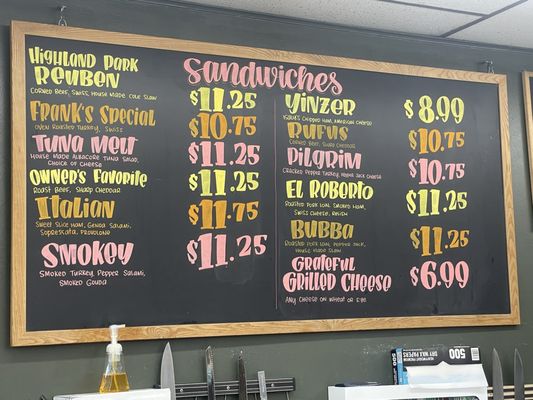 Sandwiches
Highland Park
Reuben $11.25
Corned Beef, Swiss, House Made Cole Slaw
Frank's Special $10.75
Oven Roasted Turkey, Swiss
Tuna Melt $11.25
House Made Albacore Tuna Salad,
Choice of Cheese
Owner's Favorite $11.25
Roast Beef, Sharp Cheddar
Italian $11.75
Sweet Slice Ham, Genoa Salami,
Sopressata, Provolone
Smokey $11.25
Smoked Turkey, Pepper Salami,
Smoked Gouda
Yinzer $8.99
Isaly's Chipped Ham, American Cheese
Rufus $10.75
Corned Beef, Sharp Cheddar
Pilgrim $10.75
Cracked Pepper Turkey, Pepper Jack Cheese
El Roberto $11.25
Roasted Pork Loin, Smoked Ham,
Swiss Cheese, Relish
Bubba $11.25
Roasted Pork Loin, Pepper Jack,
House Made Slaw
Grateful
Grilled Cheese $6.99
Any Cheese on Wheat or Rye
500 DRY WAX PAPERS 500